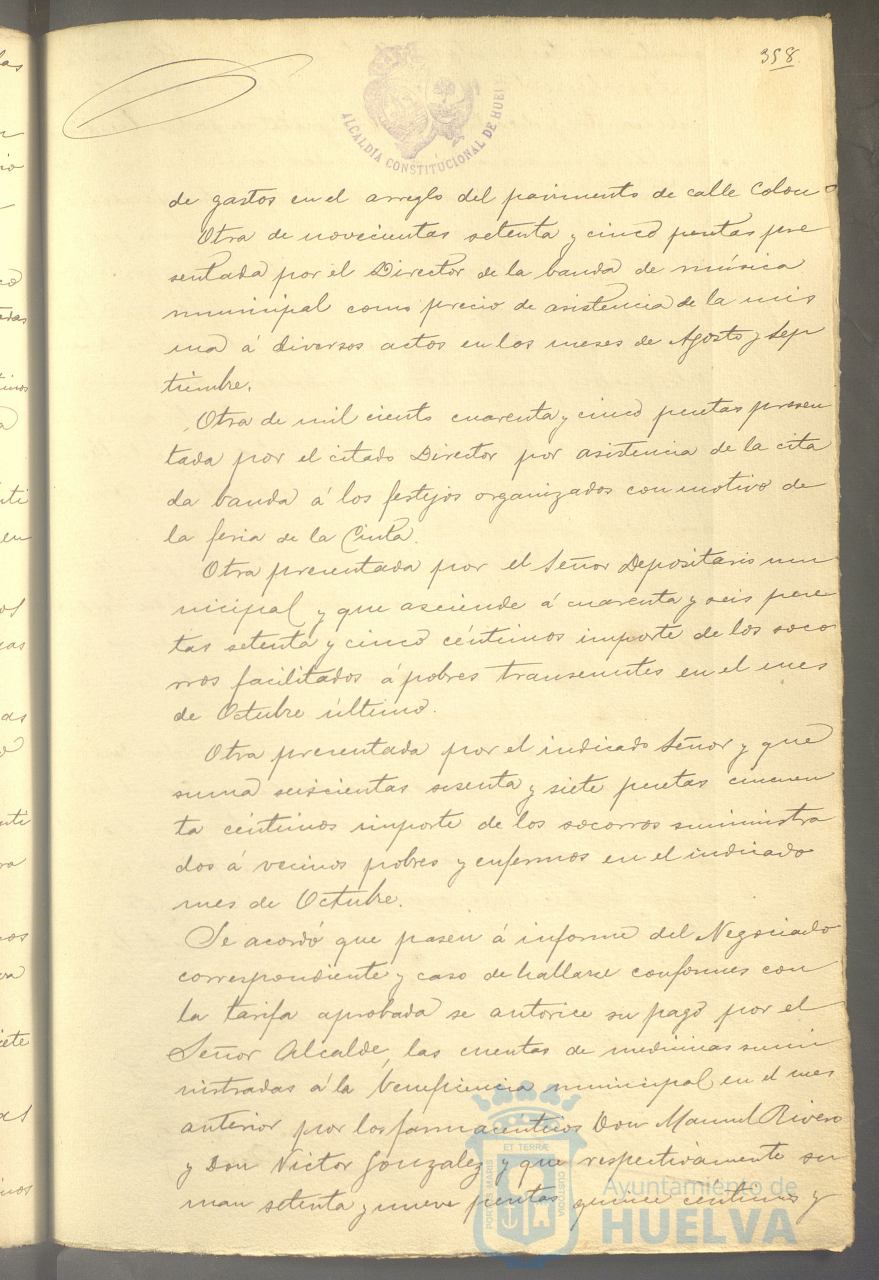 358
ALCALDÍA CONSTITUCIONAL DE HUEL
de gastos en el arreglo del pavimento de calle Colon
Otra de novecientas setenta y cinco pesetas pre
sentada por el Director de la banda de música
municipal como precio de asistencia de la mis
ma á diversos actos en los meses de Agosto y Sep
tiembre.
Otra de mil ciento cuarenta y cinco pesetas presen
tada por el citado Director por asistencia de la cita
da banda á los festejos organizados con motivo de
la feria de la Cinta.
Otra presentada por el Señor Depositario mu
nicipal y que asciende á cuarenta y seis pese
tas setenta y cinco céntimos importe de los soco
rros facilitados á pobres transeuntes en el mes
de Octubre último.
Otra presentada por el indicado Señor y que
suma seiscientas sesenta y siete pesetas cincuen
ta céntimos importe de los socorros suministra
dos á vecinos pobres y enfermos en el indicado
mes de Octubre.
Se acordó que pasen á informe del Negociado
correspondiente y caso de hallarse conformes con
la tarifa aprobada se autorice su pago por el
Señor Alcalde, las cuentas de medicinas sumi
nistradas á la beneficencia municipal en el mes
anterior por los farmaceuticos Don Manuel Rivero
y Don Victor Gonzalez y que respectivamente su
man setenta y nueve pesetas quince centimos y
PORTUS MARIS ET TERRÆ CUSTODIA
Ayuntamiento de
HUELVA